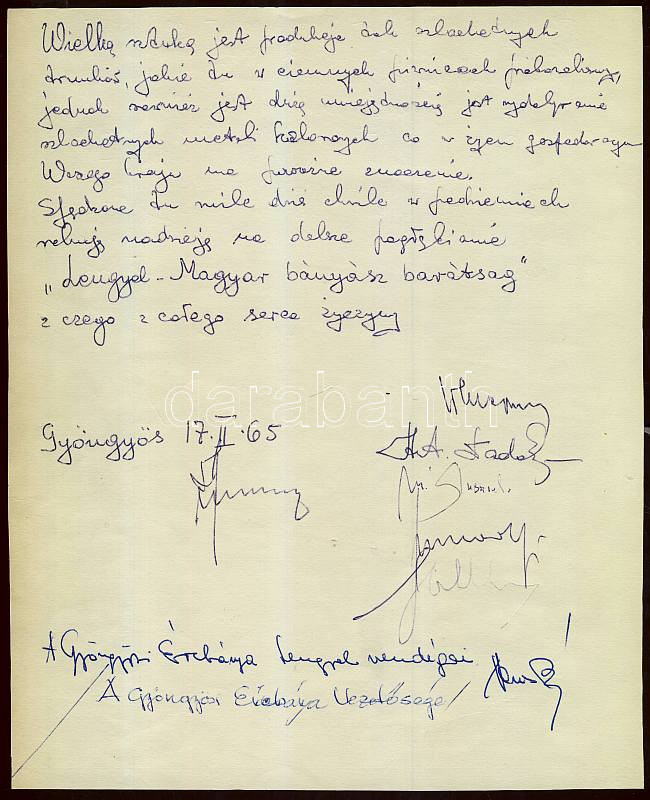 Wielką sztuką jest produkcja tak szlachetnych
trunków, jakie tu w ciemnych piwnicach próbowaliśmy,
jednak również jest dużą umiejętnością jest wydobywanie
szlachetnych metali kolorowych co w życiu gospodarczym
Waszego kraju ma poważne znaczenie.
Spędzone tu miłe dziś chwile w podziemiach
rokują nadzieję na dalsze pogłębianie
„Lengyel - Magyar bányász barátság"
z czego z całego serca życzymy
darabanth
Gyöngyös 17.II.65
A Gyöngyösi Ércbánya Lengyel vendégei
A Gyöngyösi Ércbánya Vezetősége